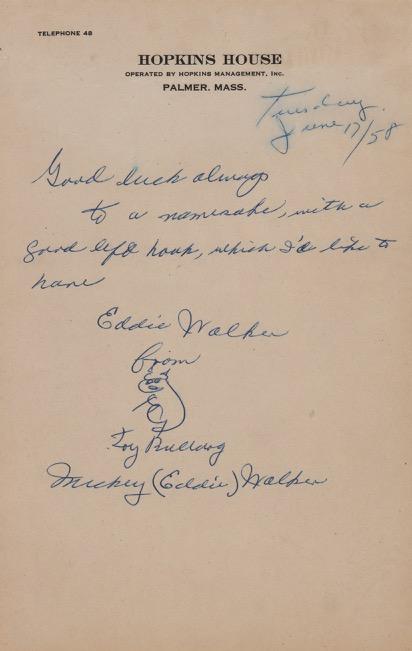 TELEPHONE 48
HOPKINS HOUSE
OPERATED BY HOPKINS MANAGEMENT, Inc.
PALMER, MASS.
Tuesday.
June 17/58
Good luck always
to a namesake, with a
good left hook, which I'd like to
have
Eddie Walker
from
Toy Bulldog
Mickey (Eddie) Walker